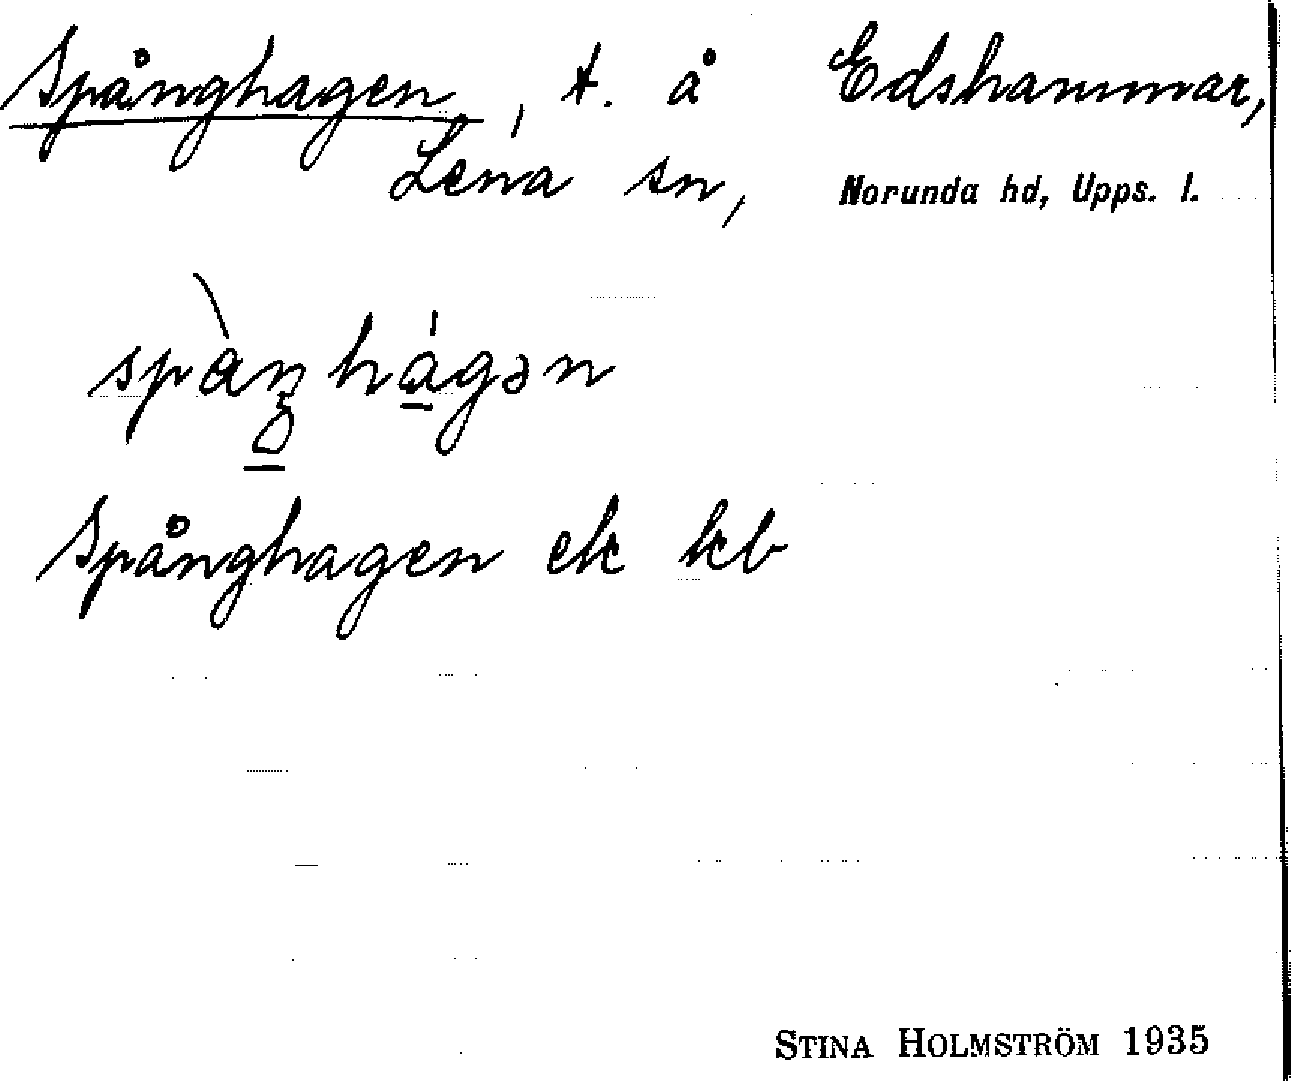 Spånghagen, t. å Edshammar,
Lena sn, Norunda hd, Upps. l.
spàŋhágən
Spånghagen ek kb
STINA HOLMSTRÖM 1935